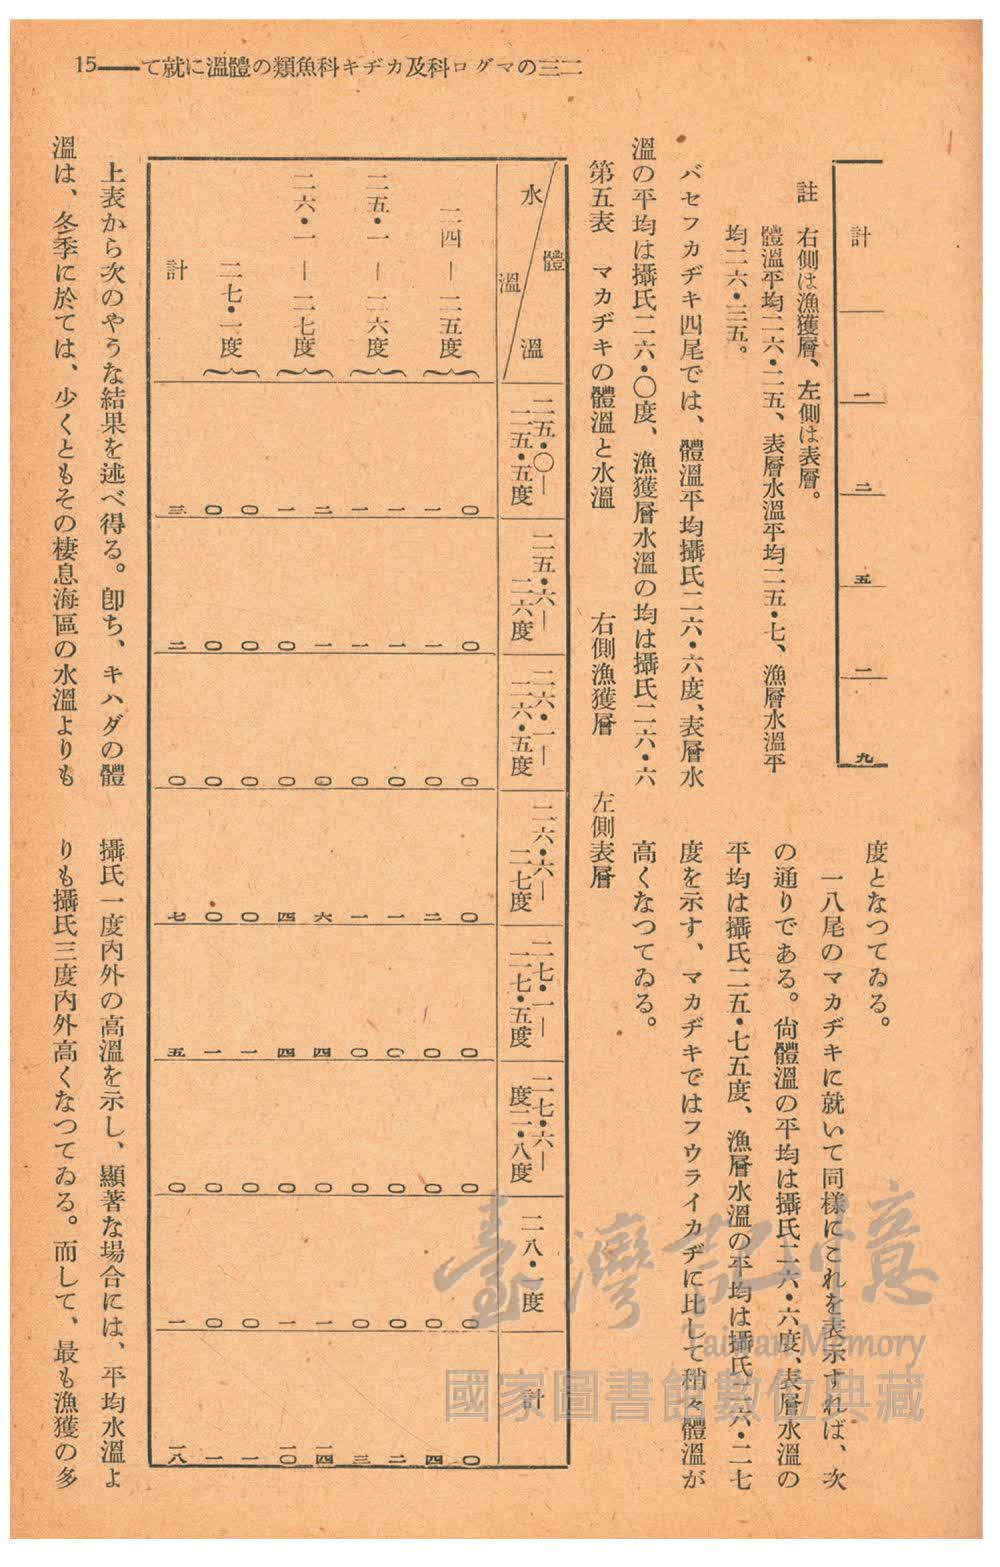 二三のマグロ科及カヂキ科魚類の體溫に就て——15
計 一 二 五 一 九
註 右側は漁獲層、左側は表層。
體溫平均二六・二五、表層水溫平均二五・七、漁層水溫平
均二六・三五。
バセフカヂキ四尾では、體溫平均攝氏二六・六度、表層水
溫の平均は攝氏二六・〇度、漁獲層水溫の均は攝氏二六・六
度となつてゐる。
一八尾のマカヂキに就いて同樣にこれを表示すれば、次
の通りである。尙體溫の平均は攝氏二六・六度、表層水溫の
平均は攝氏二五・七五度、漁層水溫の平均は攝氏二六・二七
度を示す、マカヂキではフウライカヂに比して稍々體溫が
高くなつてゐる。
第五表 マカヂキの體溫と水溫 右側漁獲層 左側表層
水溫 體溫 二五・〇—二五・五度 二五・六—二六度 二六・一—二六・五度 二六・六—二七度 二七・一—二七・五度 二七・六—二・八度 二八・一度 計
二四—二五度 〇 〇 〇 〇 〇 〇 〇 〇
一 一 〇 二 〇 〇 〇 四
二五・一—二六度 一 一 〇 一 〇 〇 〇 二
一 一 〇 一 〇 〇 〇 三
二六・一—二七度 二 一 〇 六 四 〇 一 一四
一 〇 〇 四 四 〇 一 一〇
二七・一度 〇 〇 〇 〇 一 〇 〇 一
〇 〇 〇 〇 一 〇 〇 一
計 三 二 〇 七 五 〇 一 一八
上表から次のやうな結果を述べ得る。卽ち、キハダの體
溫は、冬季に於ては、少くともその棲息海區の水溫よりも
攝氏一度內外の高溫を示し、顯著な場合には、平均水溫よ
りも攝氏三度內外高くなつてゐる。而して、最も漁獲の多
臺灣記憶
Taiwan Memory
國家圖書館數位典藏